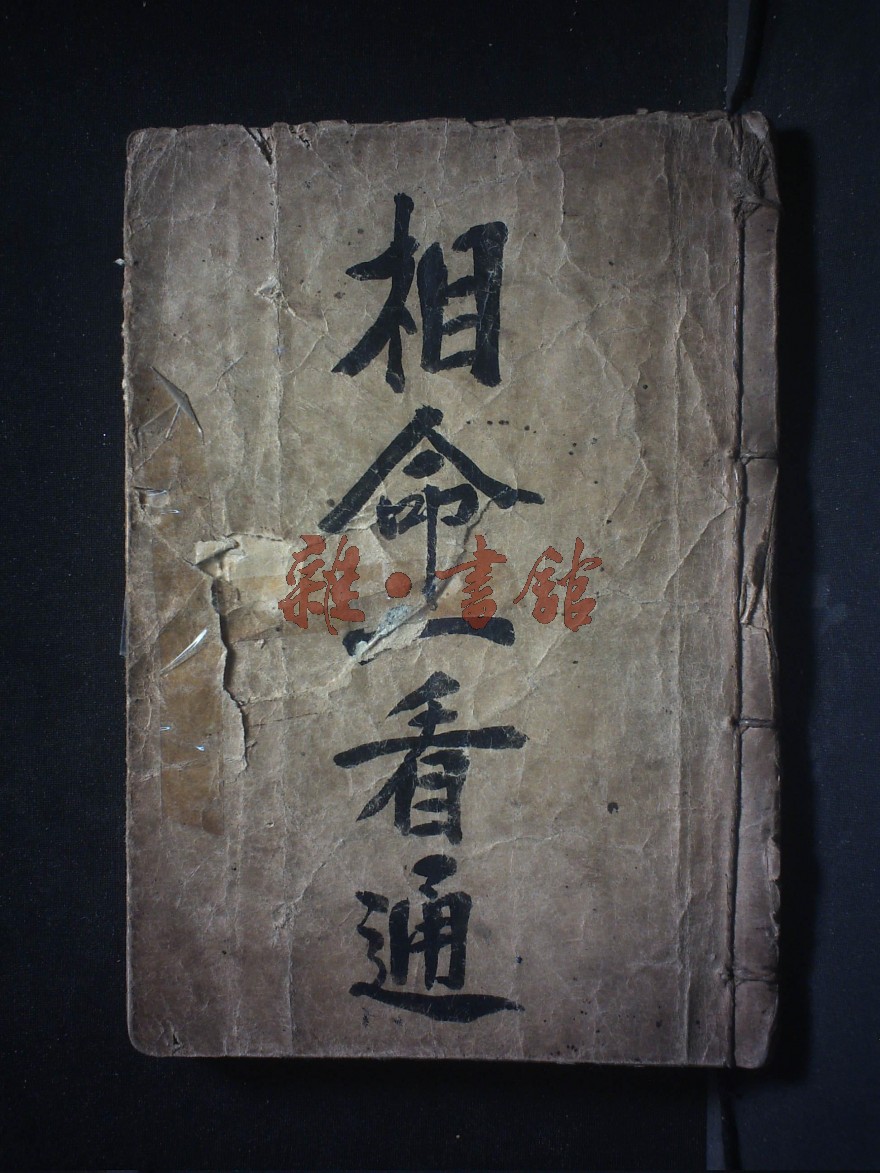 相命一看通
雜·書館